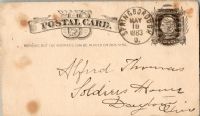 POSTAL CARD.
NOTHING BUT THE ADDRESS CAN BE PLACED ON THIS SIDE.
SPRINGBOROUGH
MAY
18
1883
O.
Alfred Thomas
Soldiers Home
Dayton
Ohio